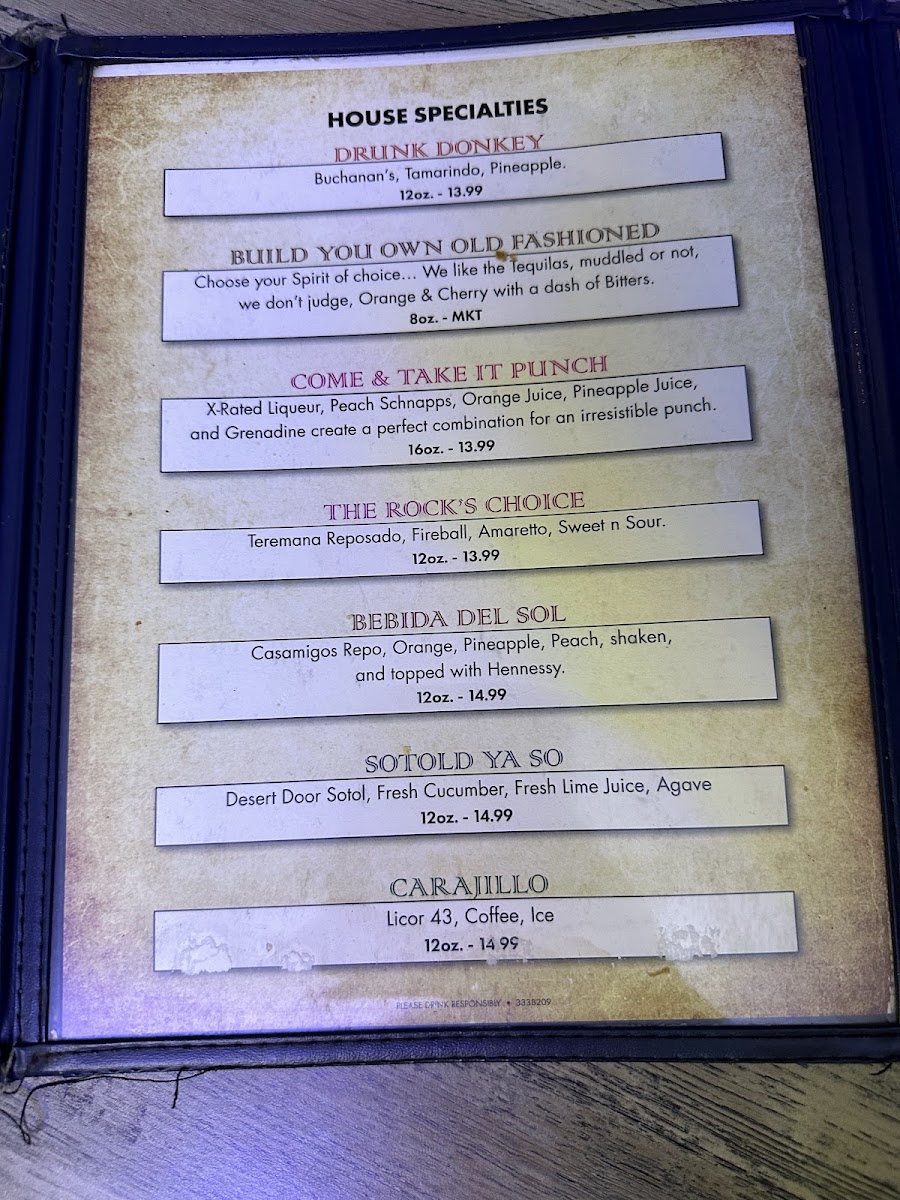 HOUSE SPECIALTIES
DRUNK DONKEY
Buchanan's, Tamarindo, Pineapple.
12oz. - 13.99
BUILD YOU OWN OLD FASHIONED
Choose your Spirit of choice... We like the Tequilas, muddled or not,
we don't judge, Orange & Cherry with a dash of Bitters.
8oz. - MKT
COME & TAKE IT PUNCH
X-Rated Liqueur, Peach Schnapps, Orange Juice, Pineapple Juice,
and Grenadine create a perfect combination for an irresistible punch.
16oz. - 13.99
THE ROCK'S CHOICE
Teremana Reposado, Fireball, Amaretto, Sweet n Sour.
12oz. - 13.99
BEBIDA DEL SOL
Casamigos Repo, Orange, Pineapple, Peach, shaken,
and topped with Hennessy.
12oz. - 14.99
SOTOLD YA SO
Desert Door Sotol, Fresh Cucumber, Fresh Lime Juice, Agave
12oz. - 14.99
CARAJILLO
Licor 43, Coffee, Ice
12oz. - 14.99
PLEASE DRINK RESPONSIBLY • 3338209